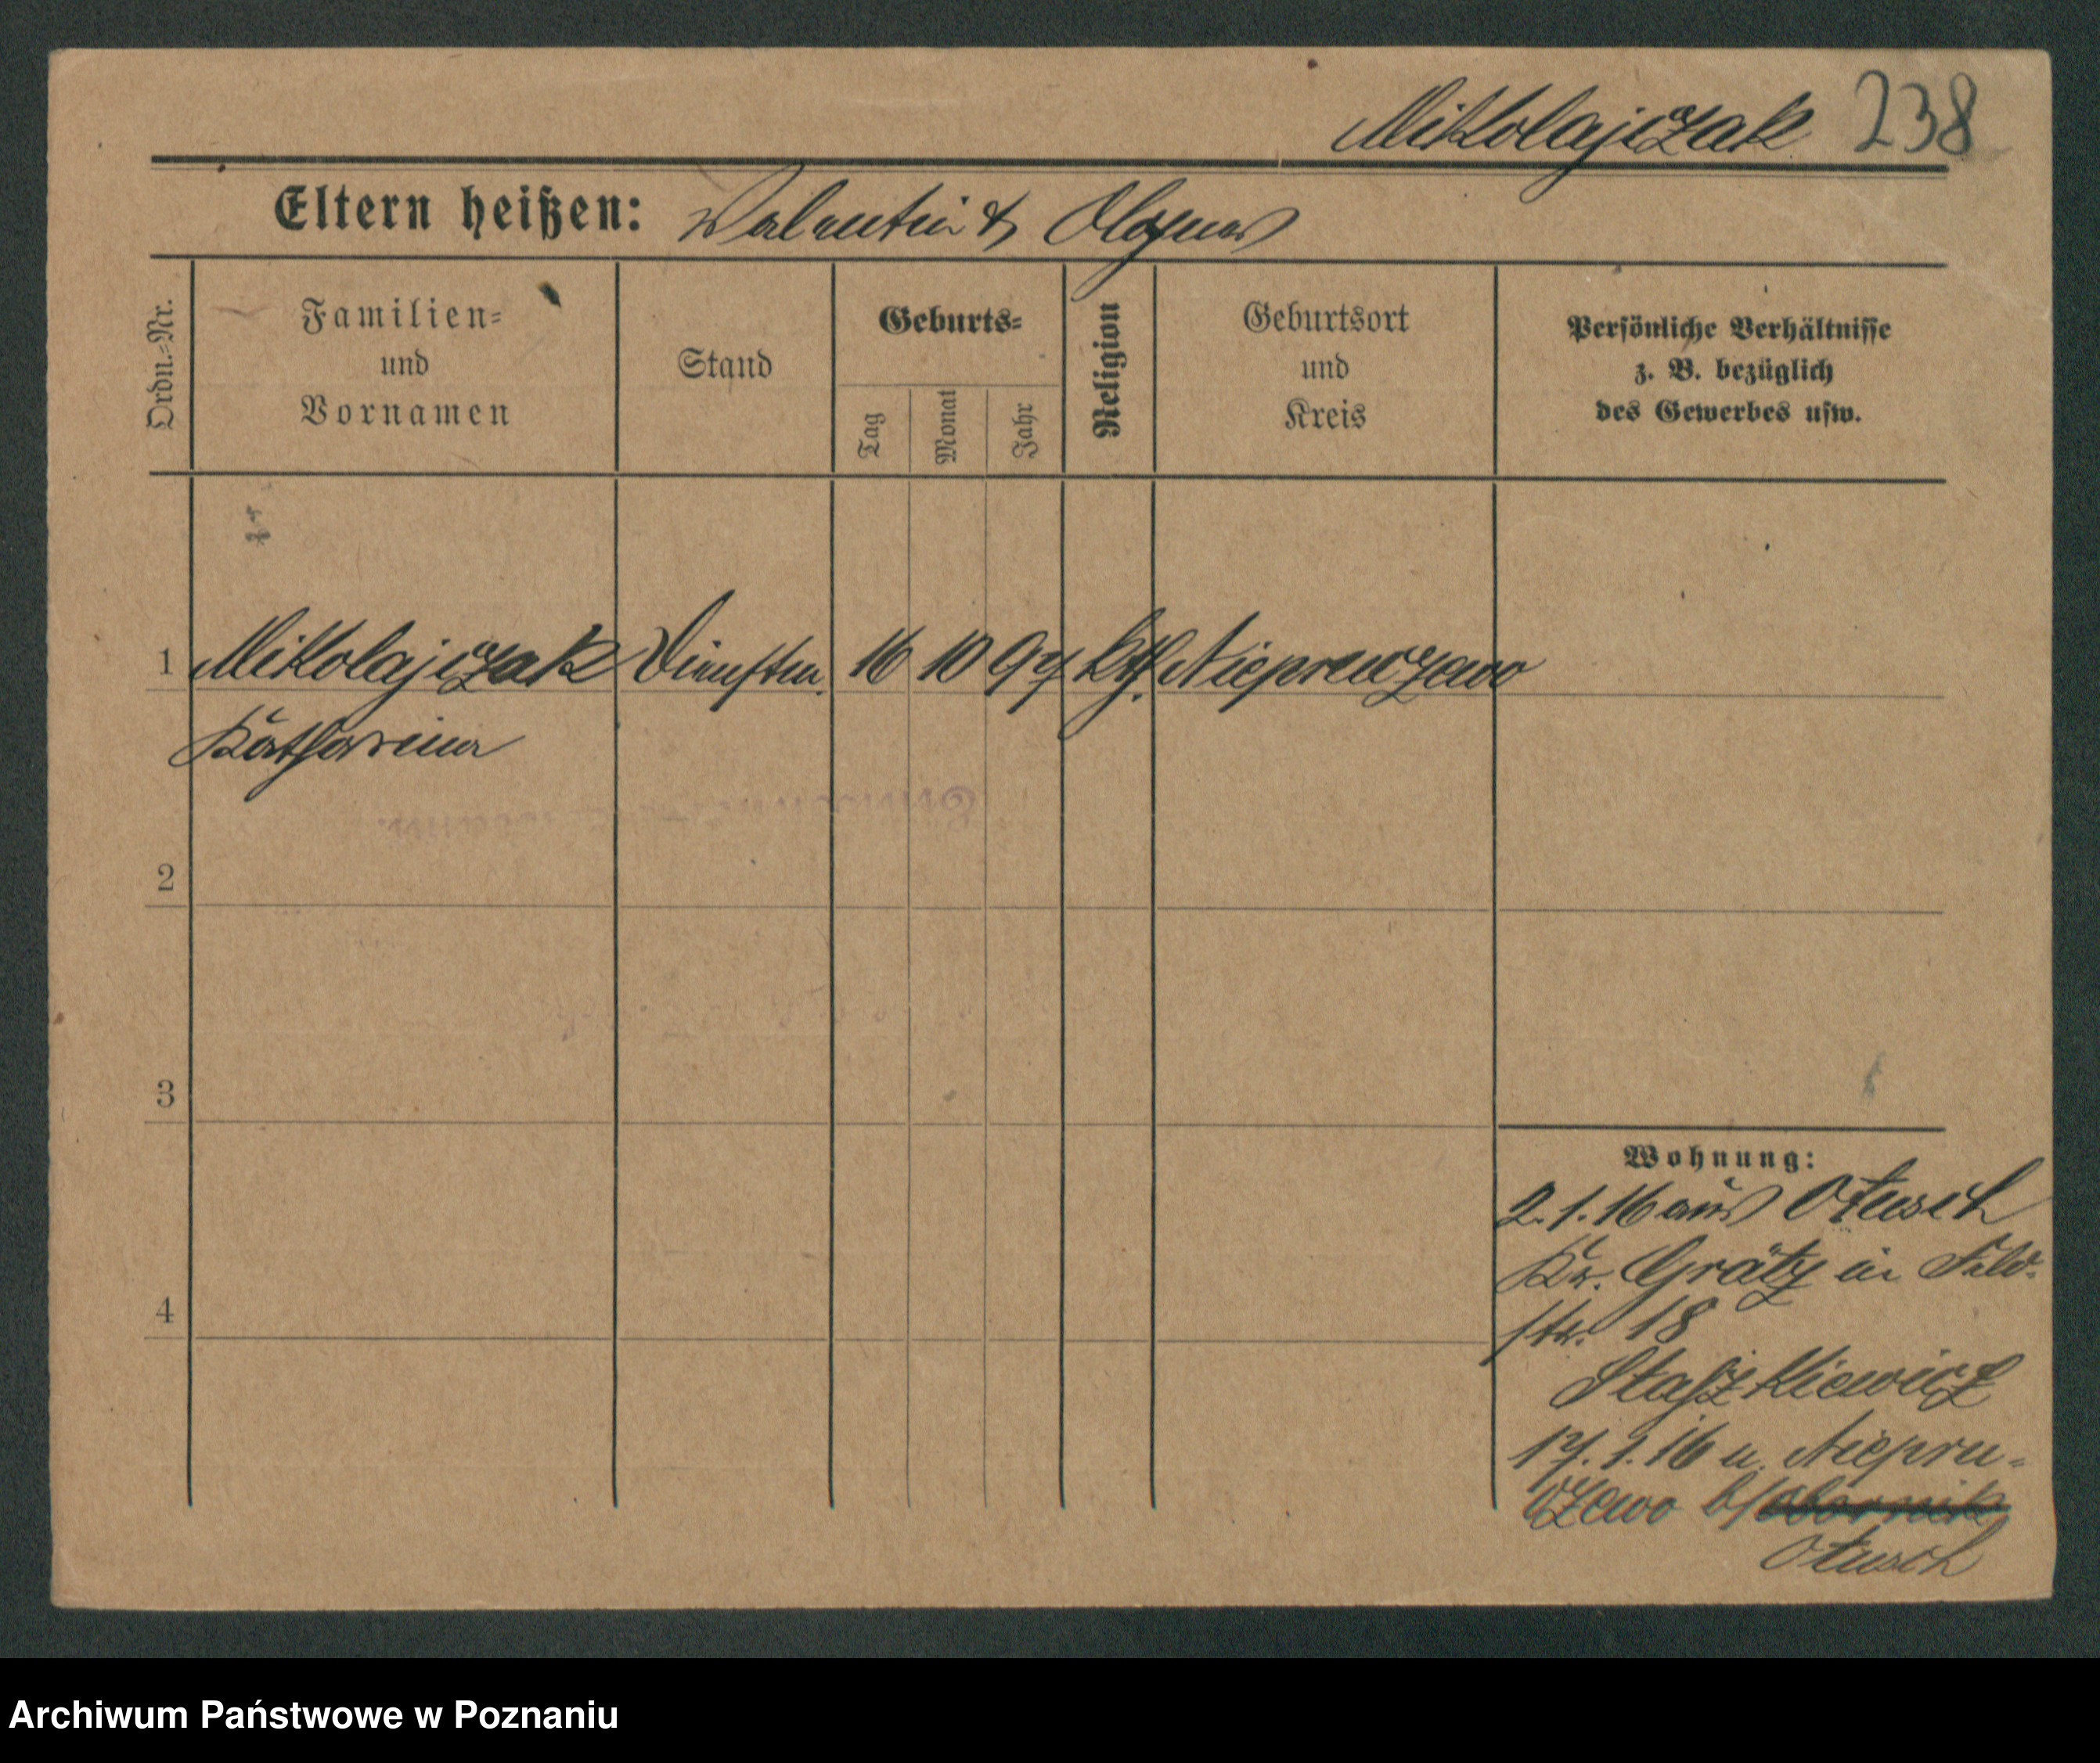 Mikolajczak 238
Eltern heißen: Valentin & Agnes
Ordn.-Nr.
Familien-
und
Vornamen
Stand
Geburts-
Tag
Monat
Jahr
Religion
Geburtsort
und
Kreis
Persönliche Verhältnisse
z. B. bezüglich
des Gewerbes usw.
1 Mikolajczak Dienstm. 16 10 97 kth. Niepruczewo
Katharina
2
3
4
Wohnung:
2. 1. 16 aus Otusch
Kr. Grätz in Feld-
str. 18
Staszkiewicz
17. 1. 16 n. Niepru-
czewo b/ Obornik
Otusch
Archiwum Państwowe w Poznaniu